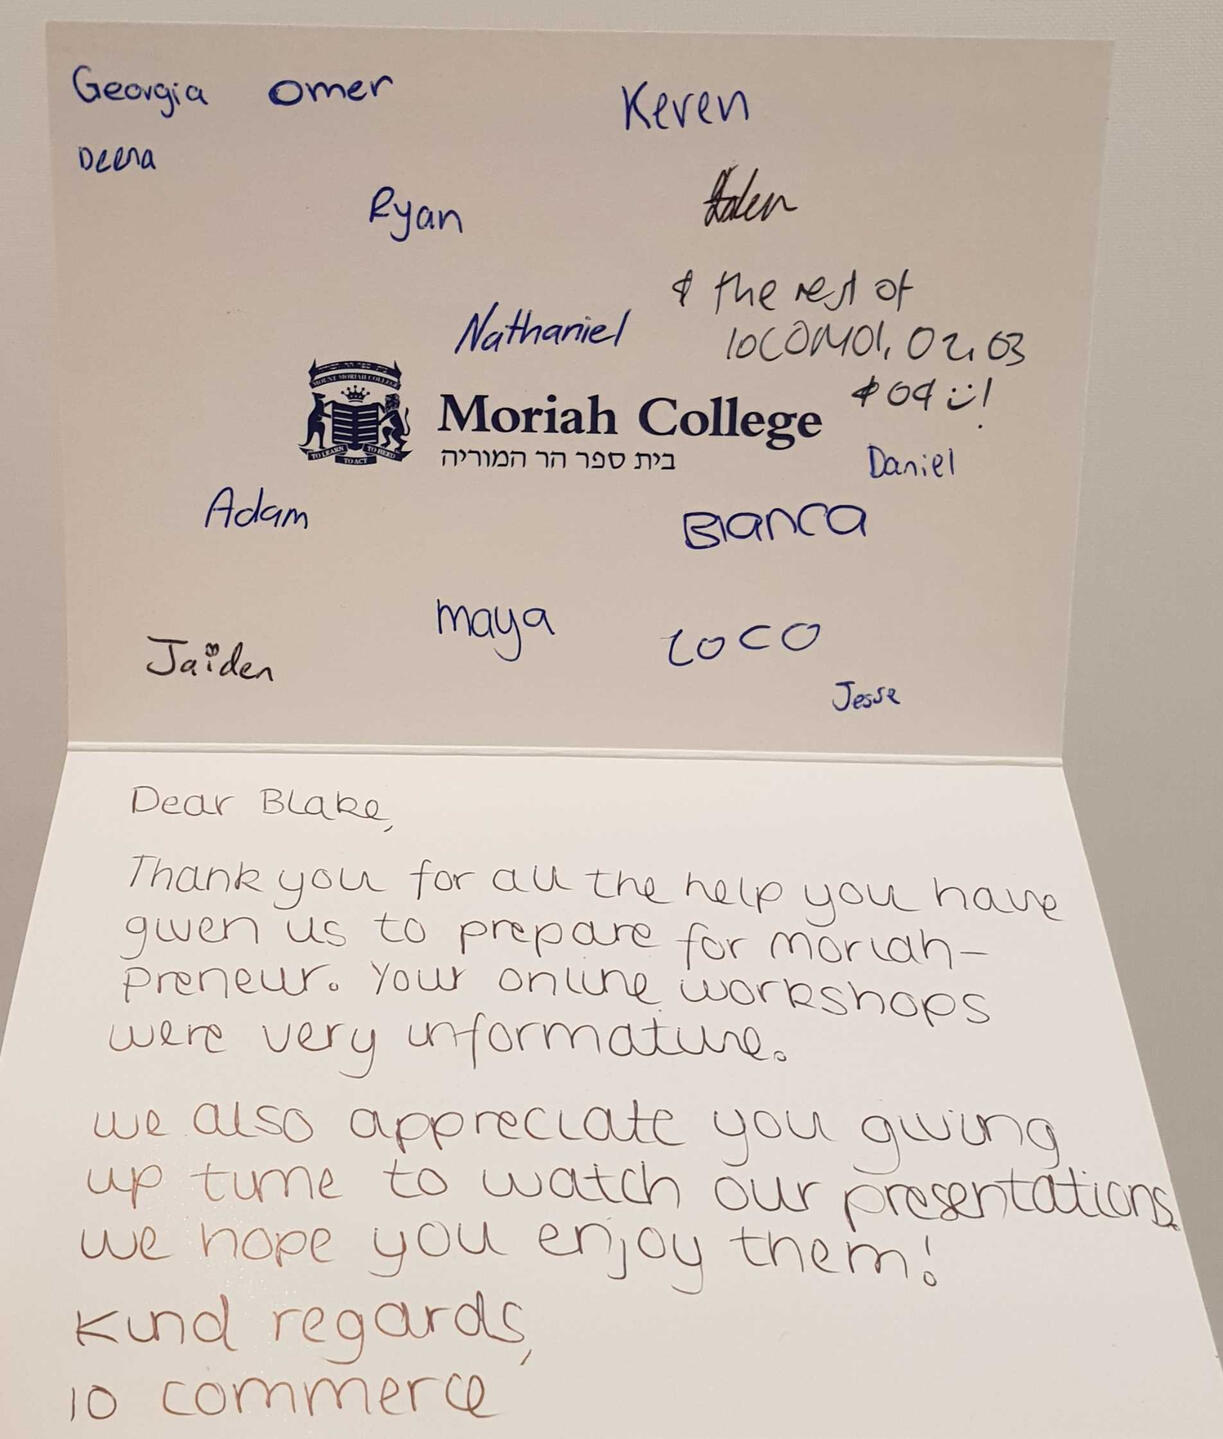 Georgia Omer Keren
Deena
Ryan
& the rest of
Nathaniel
10COM01, 02, 03
& 04 :)!
MOUNT MORIAH COLLEGE
Moriah College
בית ספר הר המוריה
TO LEARN TO HEED
TO ACT
Daniel
Adam
Bianca
maya
Jaiden
Jesse
Dear Blake,
Thank you for all the help you have
given us to prepare for moriah-
preneur. Your online workshops
were very informative.
we also appreciate you giving
up time to watch our presentations.
we hope you enjoy them!
Kind regards,
10 commerce